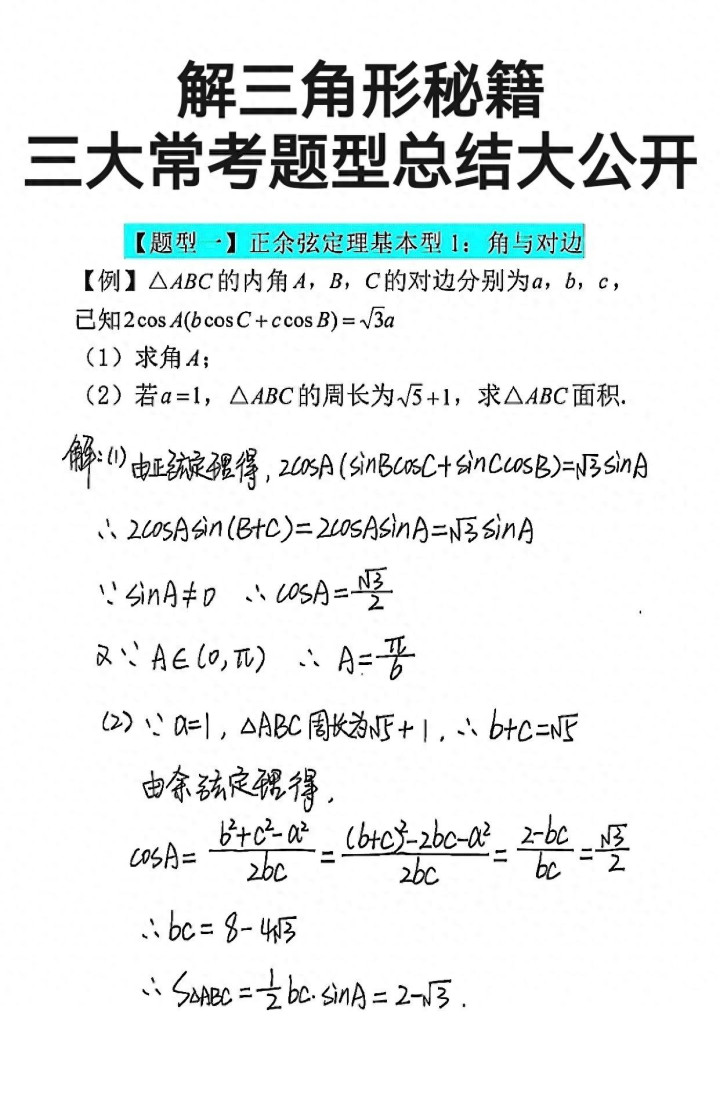 解三角形秘籍
三大常考题型总结大公开
【题型一】正余弦定理基本型1：角与对边
【例】△ABC的内角A，B，C的对边分别为a，b，c，
已知2cos A(bcosC+ccosB)=√3a
（1）求角A；
（2）若a=1，△ABC的周长为√5+1，求△ABC面积.
解:(1)由正弦定理得，2cosA(sinBcosC+sinCcosB)=√3sinA
∴2cosAsin(B+C)=2cosAsinA=√3sinA
∵sinA≠0 ∴cosA=√3/2
又∵A∈(0,π) ∴A=π/6
(2)∵a=1，△ABC周长为√5+1，∴b+c=√5
由余弦定理得，
cosA=(b²+c²-a²)/2bc=((b+c)²-2bc-a²)/2bc=(2-bc)/bc=√3/2
∴bc=8-4√3
∴S△ABC=1/2bc·sinA=2-√3.